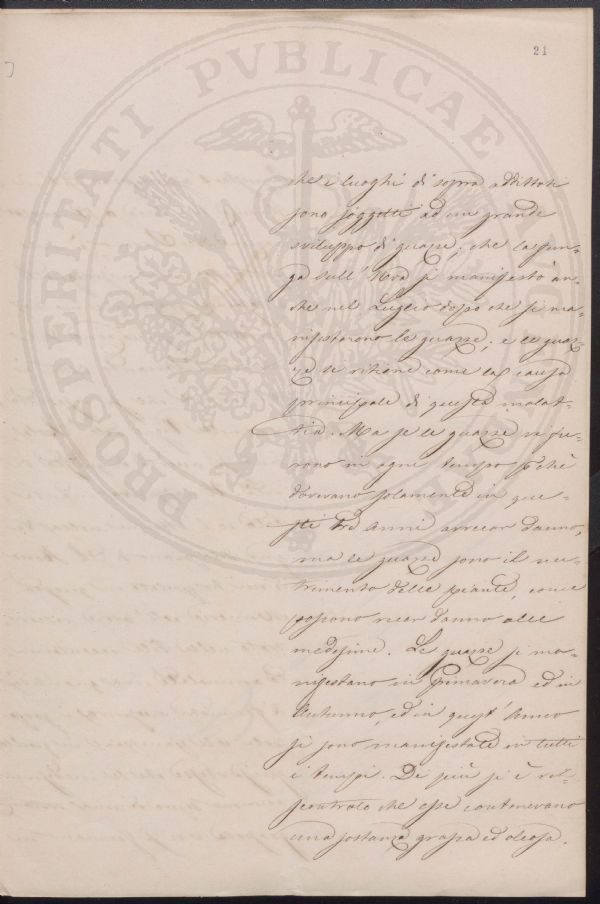 21
PROSPERITATI PVBLICAE
che i luoghi di sopra additati
sono soggetti ad un grande
sviluppo di guazze; che la fun-
ga sull' Uva si manifestò an-
che nel Luglio dopo che si ma-
nifestarono le guazze; e le guaz-
ze si ritiene come la causa
principale di questa malat-
tia. Ma se le guazze vi fu-
rono in ogni tempo
dovevano solamente in que-
sti tre anni arrecar danno,
ma le guazze sono il nu-
trimento delle piante, come
possono recar danno alle
medesime. Le guazze si ma-
nifestano in Primavera ed in
Autunno, ed in quest' Anno
si sono manifestate in tutti
i tempi. Di più si è ris-
contrato che esse contenevano
una sostanza grassa ed oleosa.